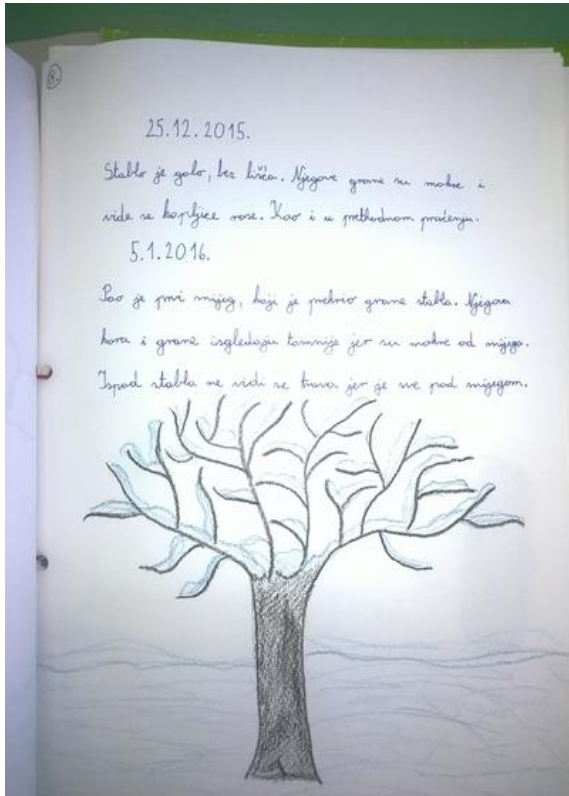 8.
25.12.2015.
Stablo je golo, bez lišća. Njegove grane su mokre i
vide se kapljice rose. Kao i u prethodnom praćenju.
5.1.2016.
Pao je prvi snijeg, koji je prekrio grane stabla. Njegova
kora i grane izgledaju tamnije jer su mokre od snijega.
Ispod stabla ne vidi se trava jer je sve pod snijegom.